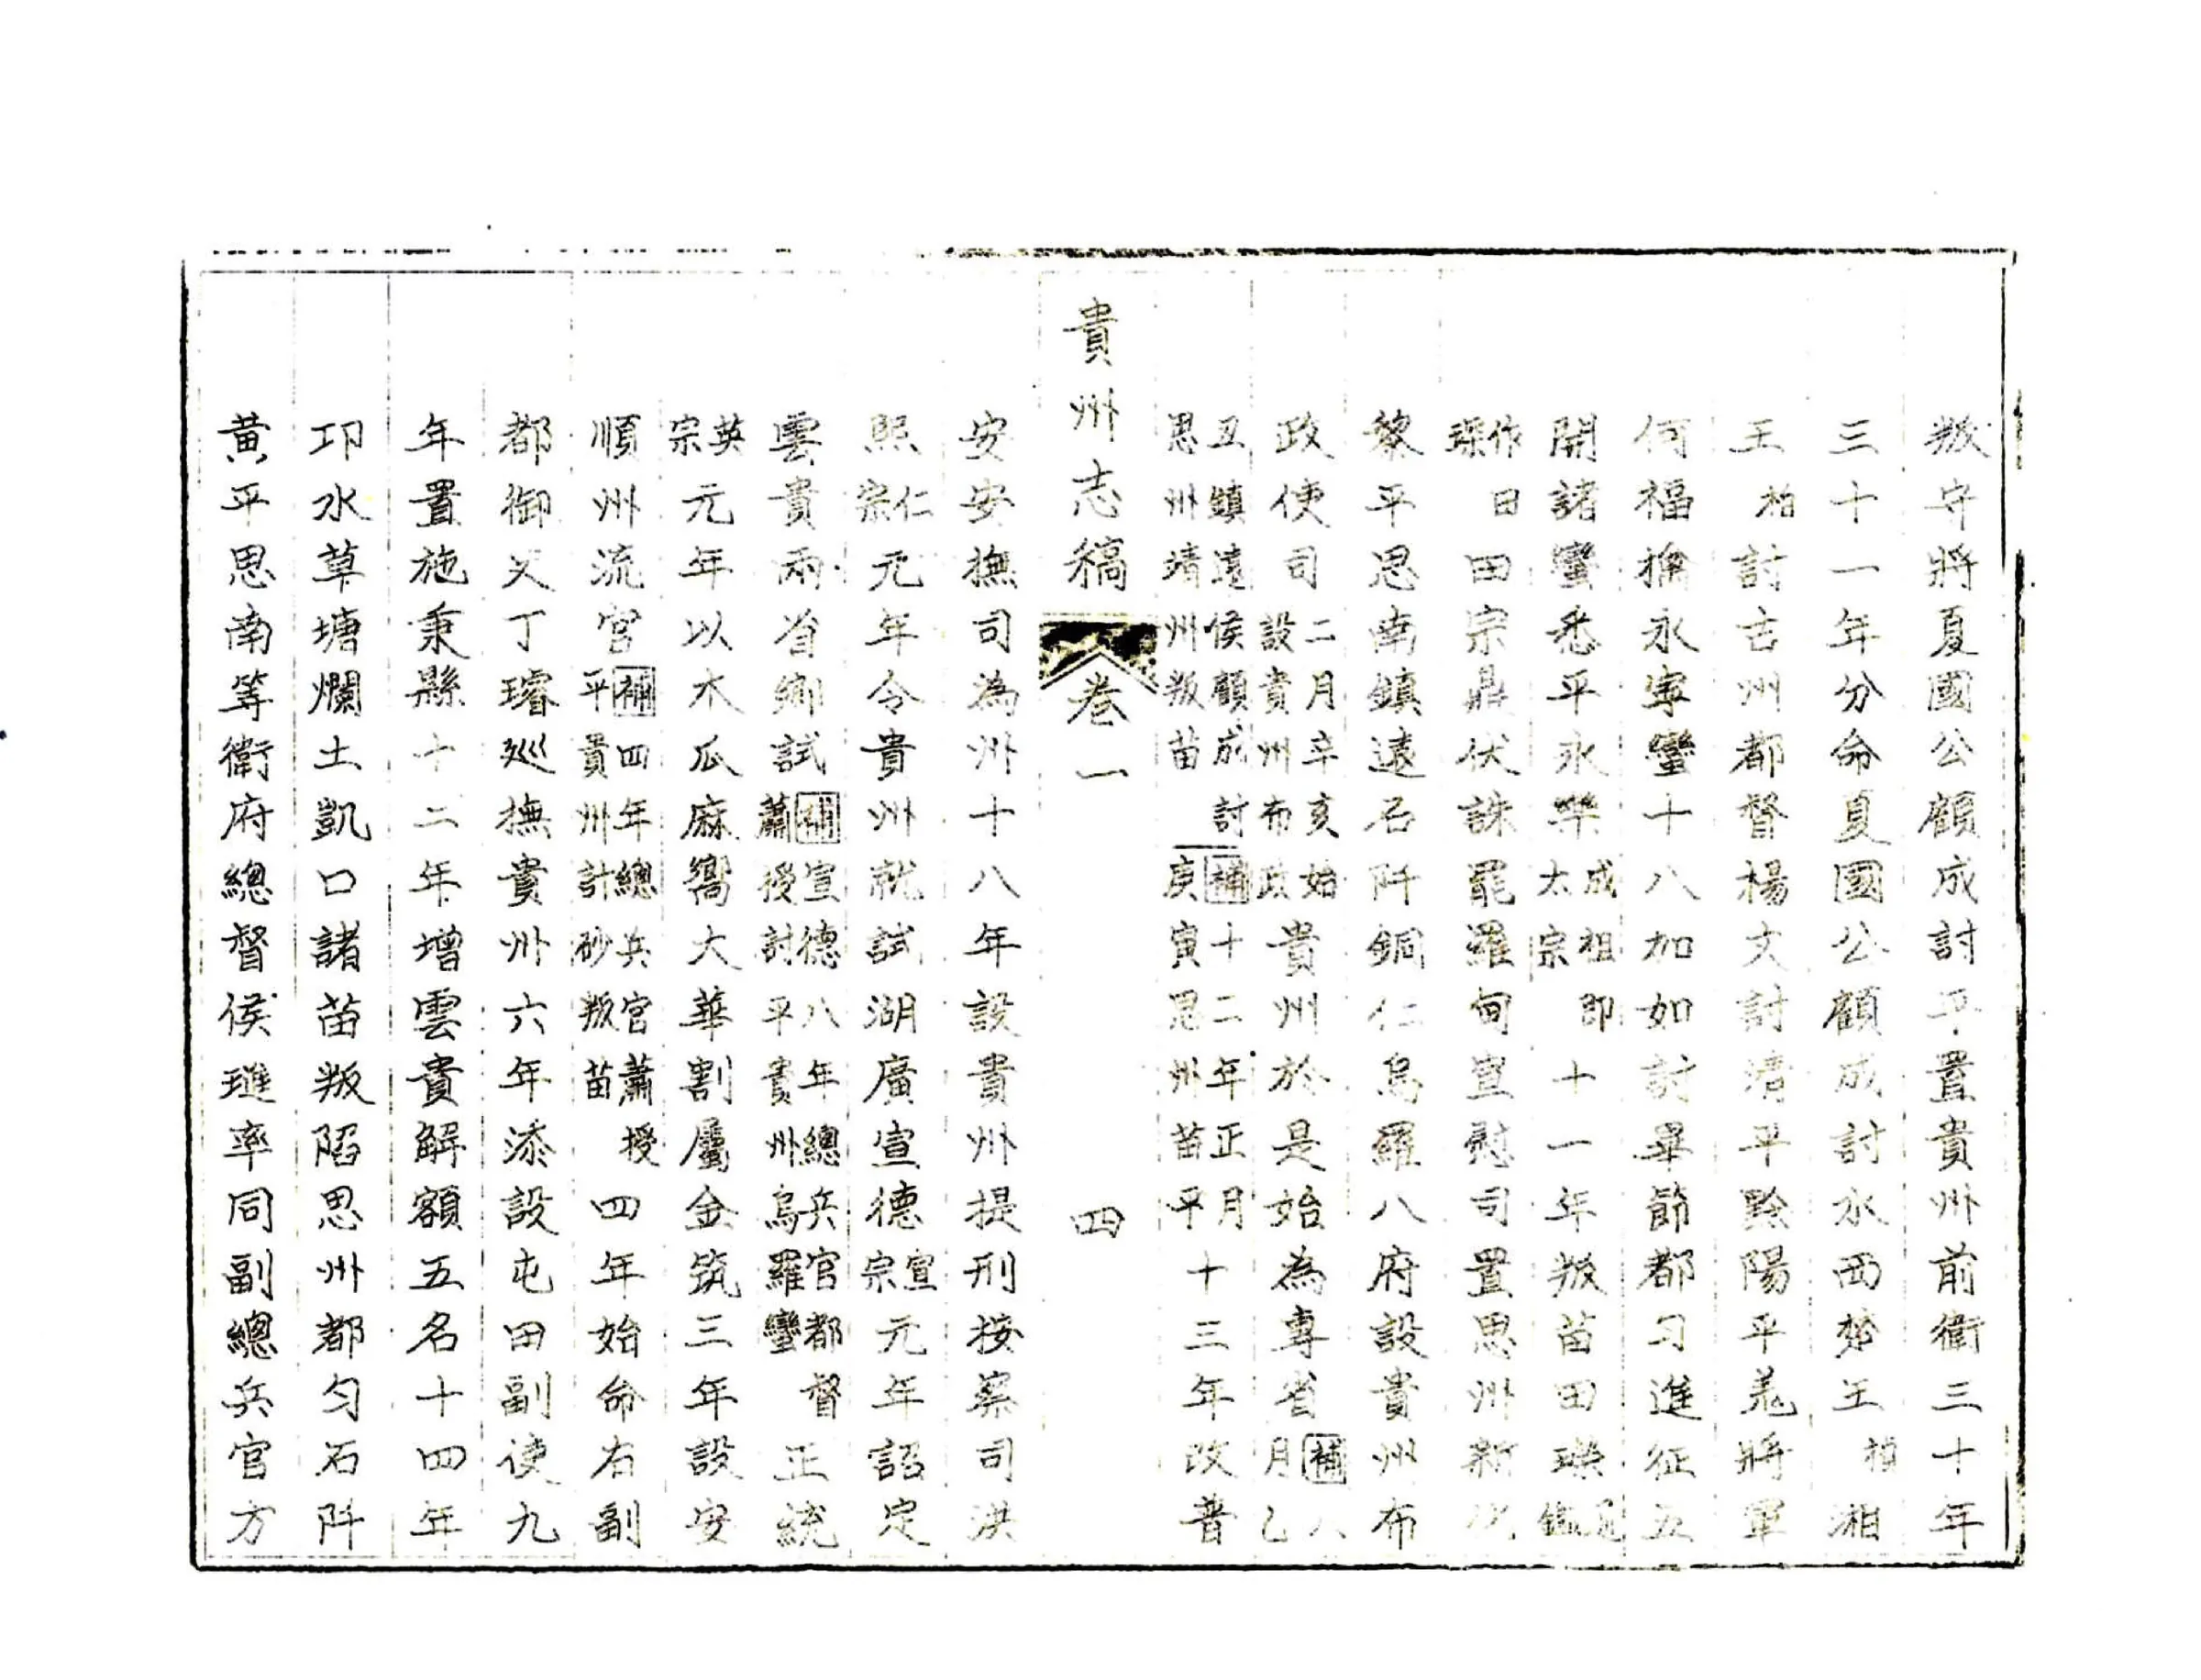 叛守將夏國公顧成討平置貴州前衛三十年
三十一年分命夏國公顧成討水西楚王楨湘
王柏討古州都督楊文討清平黔陽平羌將軍
何福擒永寧蠻十八加如討畢節都习進征五
開諸蠻悉平永樂成祖即太宗十一年叛苗田
作日琛田宗鼎伏誅罷羅甸宣慰司置思州新化
黎平思南鎮遠石阡銅仁烏羅八府設貴州布
政使司二月辛亥始設貴州布政貴州於是始為專省補八月乙
丑鎮遠侯顧成討思州靖州叛苗補十二年正月庚寅思州苗平十三年改普
貴州志稿 卷一 四
安安撫司為州十八年設貴州提刑按察司洪
熙仁宗元年令貴州就試湖廣宣德宣宗元年詔定
雲貴兩省鄉試補宣德八年總兵官都督蕭授討平貴州烏羅蠻正統
英宗元年以木瓜麻嚮大華割屬金筑三年設安
順州流官補四年總兵官蕭授平貴州計砂叛苗四年始命右副
都御丈丁璿巡撫貴州六年添設屯田副使九
年置施秉縣十二年增雲貴解額五名十四年
邛水草塘爛土凱口諸苗叛陷思州都匀石阡
黃平思南等衛府總督侯璡率同副總兵官方